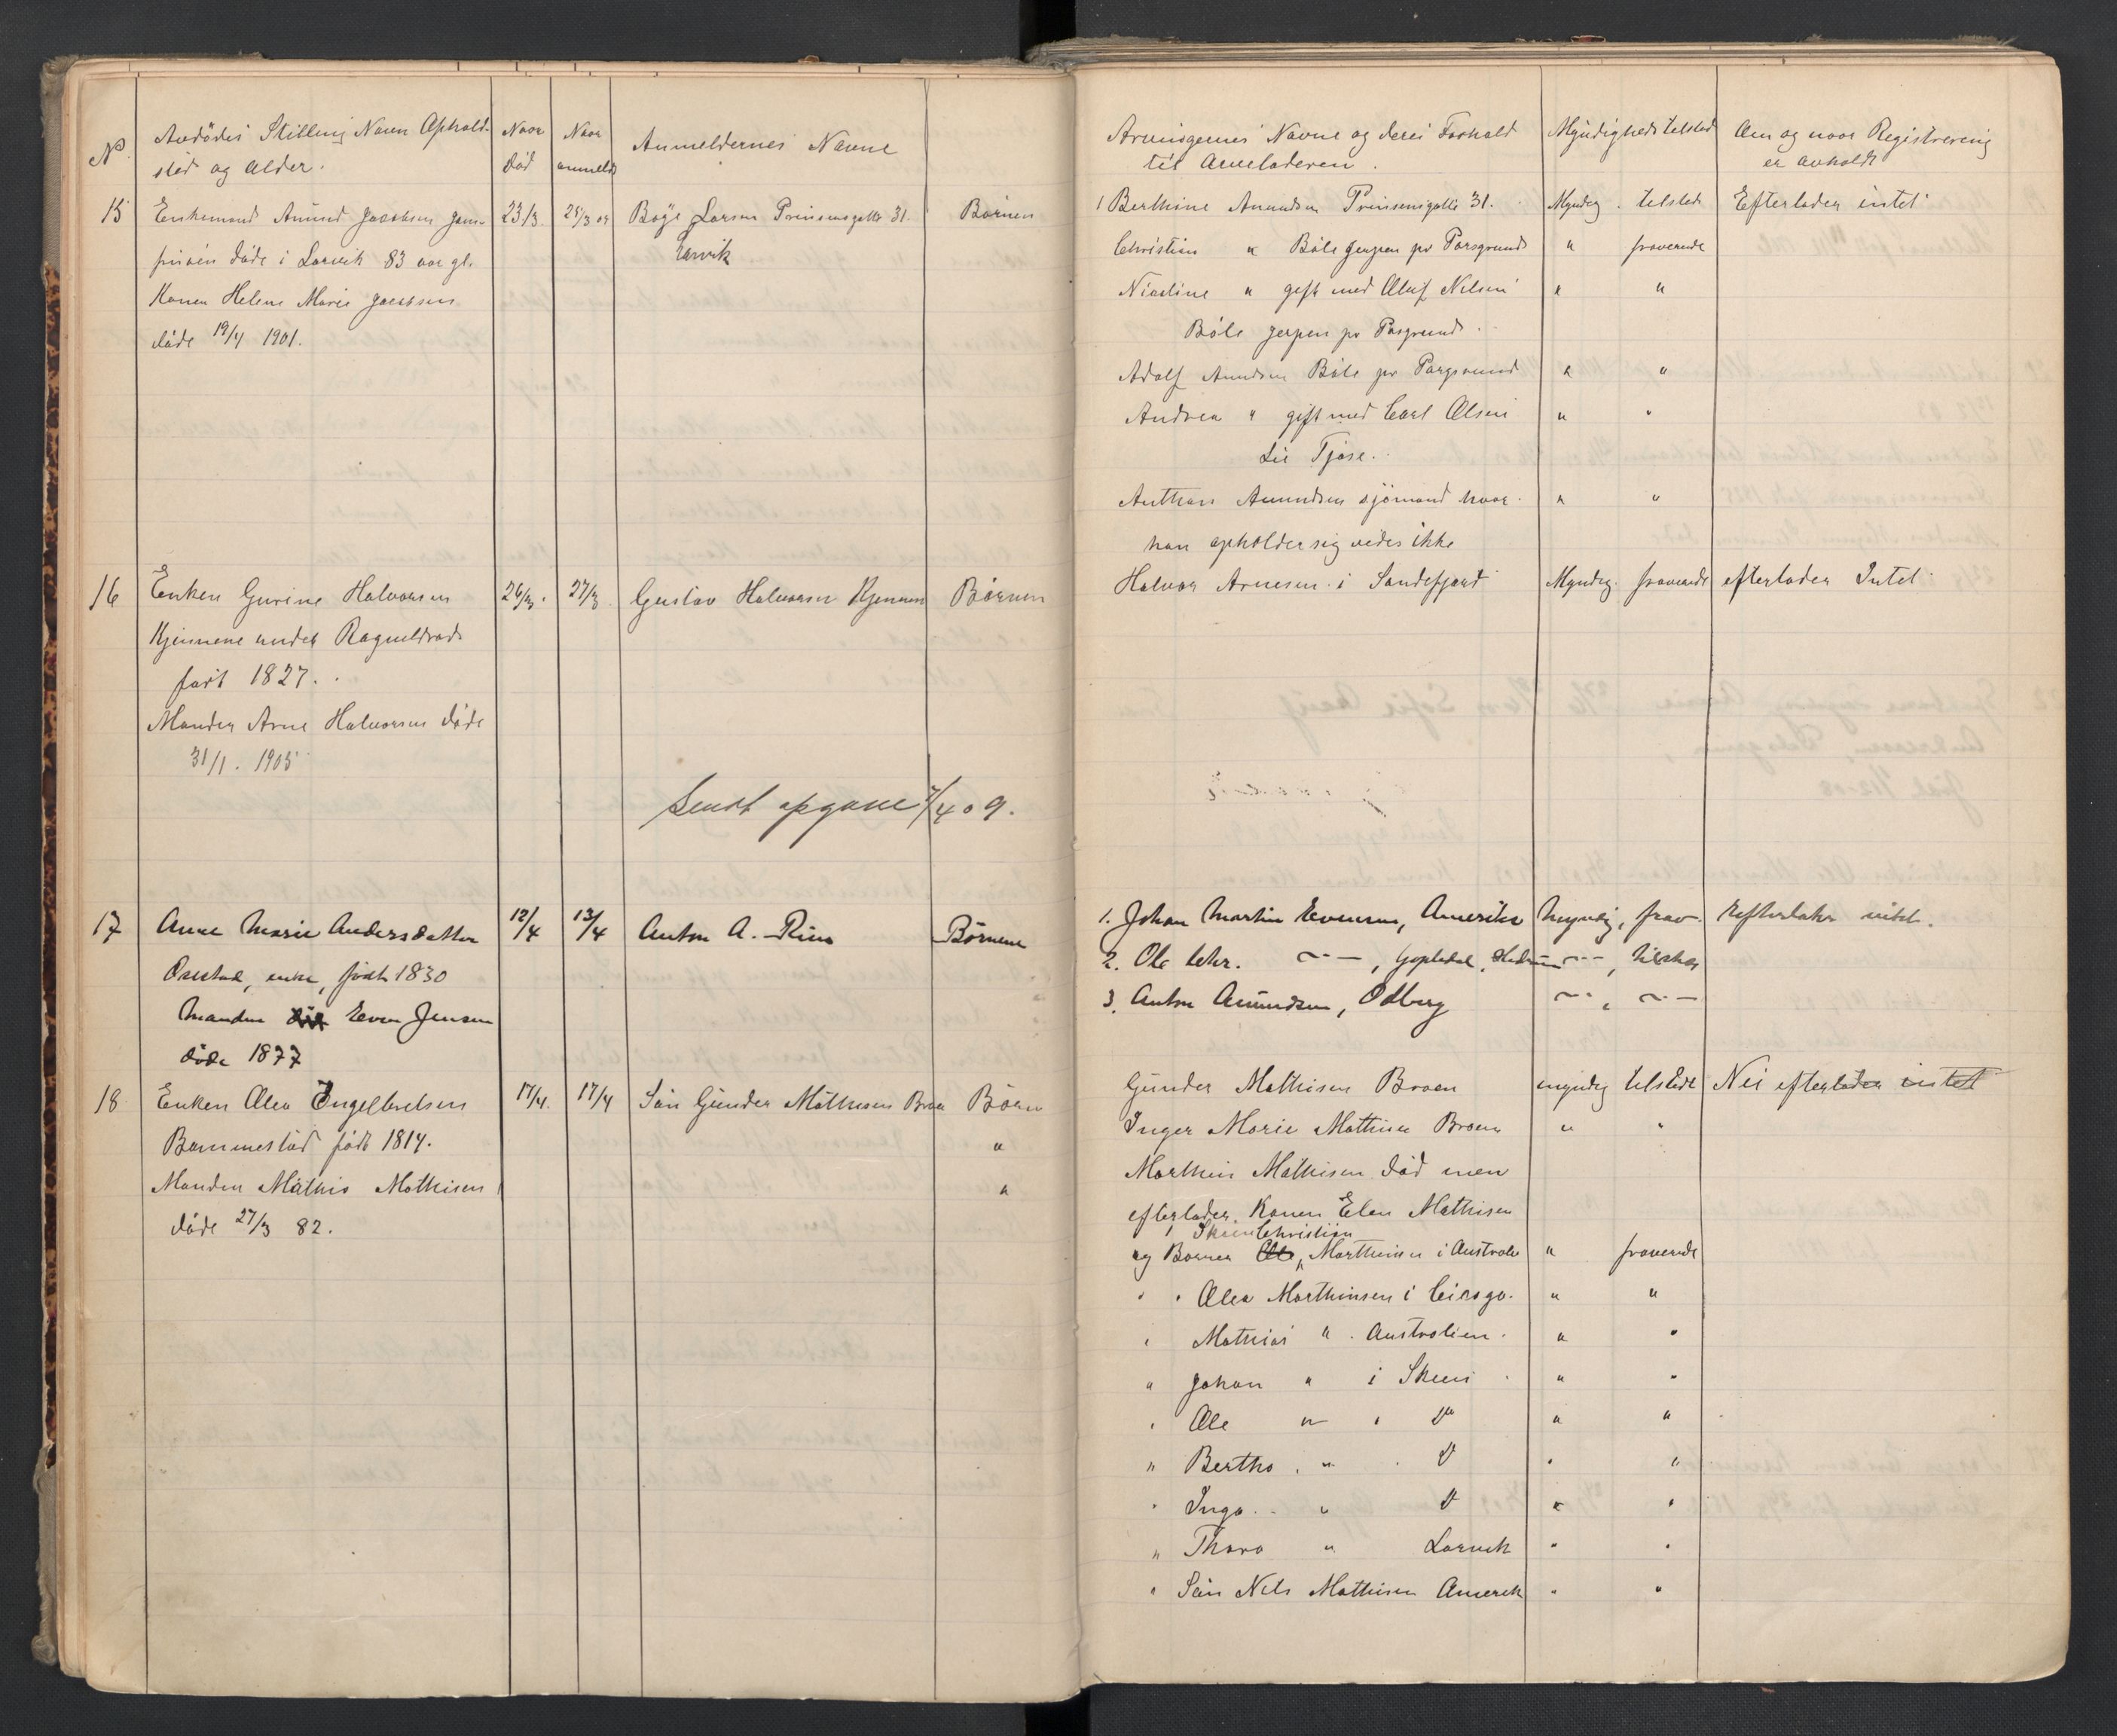 No
Avdødes Stilling Navn Ophold-
sted og alder.
Naar
død
Naar
anmeldt
Anmeldernes Navne
15
Enkemand Amund Jacobsen
døde i Larvik 83 aar gl.
Konen Helene Marie Jacobsen
døde 19/4 1901.
23/3
25/3 09
Boye Larsen Prinsensgatte 31.
Larvik
Børnen
16
Enken Gurine Halvorsen
Kjennene under
født 1827.
Manden Arne Halvorsen døde
31/1. 1905
26/3.
27/3
Gustav Halvorsen Kjennen
Børnen
Sendt opgave 7/4 09.
17
Anne Marie Andersdatter
enke, født 1830
Manden Even Jensen
døde 1877
12/4
13/4
Anton A. Rim
Børnene
18
Enken Olea Engelbretsen
Bommestad født 1814.
Manden Mathis Mathisen
døde 27/3 82.
17/4.
17/4
Søn Gunder Mathisen Broen
Børn
"
"
Arvingernes Navne og deres Forhold
til Arveladeren.
Myndigheds tilsted
Om og naar Registrering
er avholdt
1 Berthine Amundsen Prinsensgatte 31.
Myndig. tilstede
Efterlader intet
Christine " Bøle Gjerpen pr Porsgrund
" fraverende
Nicoline " gift med Oluf Nilsen
" "
Bøle Gjerpen pr Porsgrund.
Adolf Amundsen Bøle pr Porsgrund
" "
Andrea " gift med Carl Olsen
" "
Lie Tjøse.
Anthon Amundsen sjømand hvor
" "
han opholder sig vides ikke
Halvor Arnesen i Sandefjord
Myndig. fraverende
efterlader Intet
1. Johan Martin Evensen, Amerika
Myndig, frav.
Efterlater intet.
2. Ole Edv. —"—, Gopledal, Hedrum
—"—, tilstede
3. Anton Amundsen, Odberg
—"—, —"—
Gunder Mathisen Broen
myndig tilstede
Nei efterlader intet
Inger Marie Mathisen Broen
" "
Marthin Mathisen død men
efterlader Konen Elen Mathisen
Skien Christian
og Børnen Ole, Marthinsen i Australie
" fraverende
" " Olea Marthinsen i Cicago.
" "
" Mathias " . Australien.
" "
" Johan " i Skien
" "
" Ole " " Do
" "
" Bertha . " . Do
" "
" Inga . . " Do
" "
" Thara " Larvik
" "
" Søn Nils Mathisen Amerik
" "